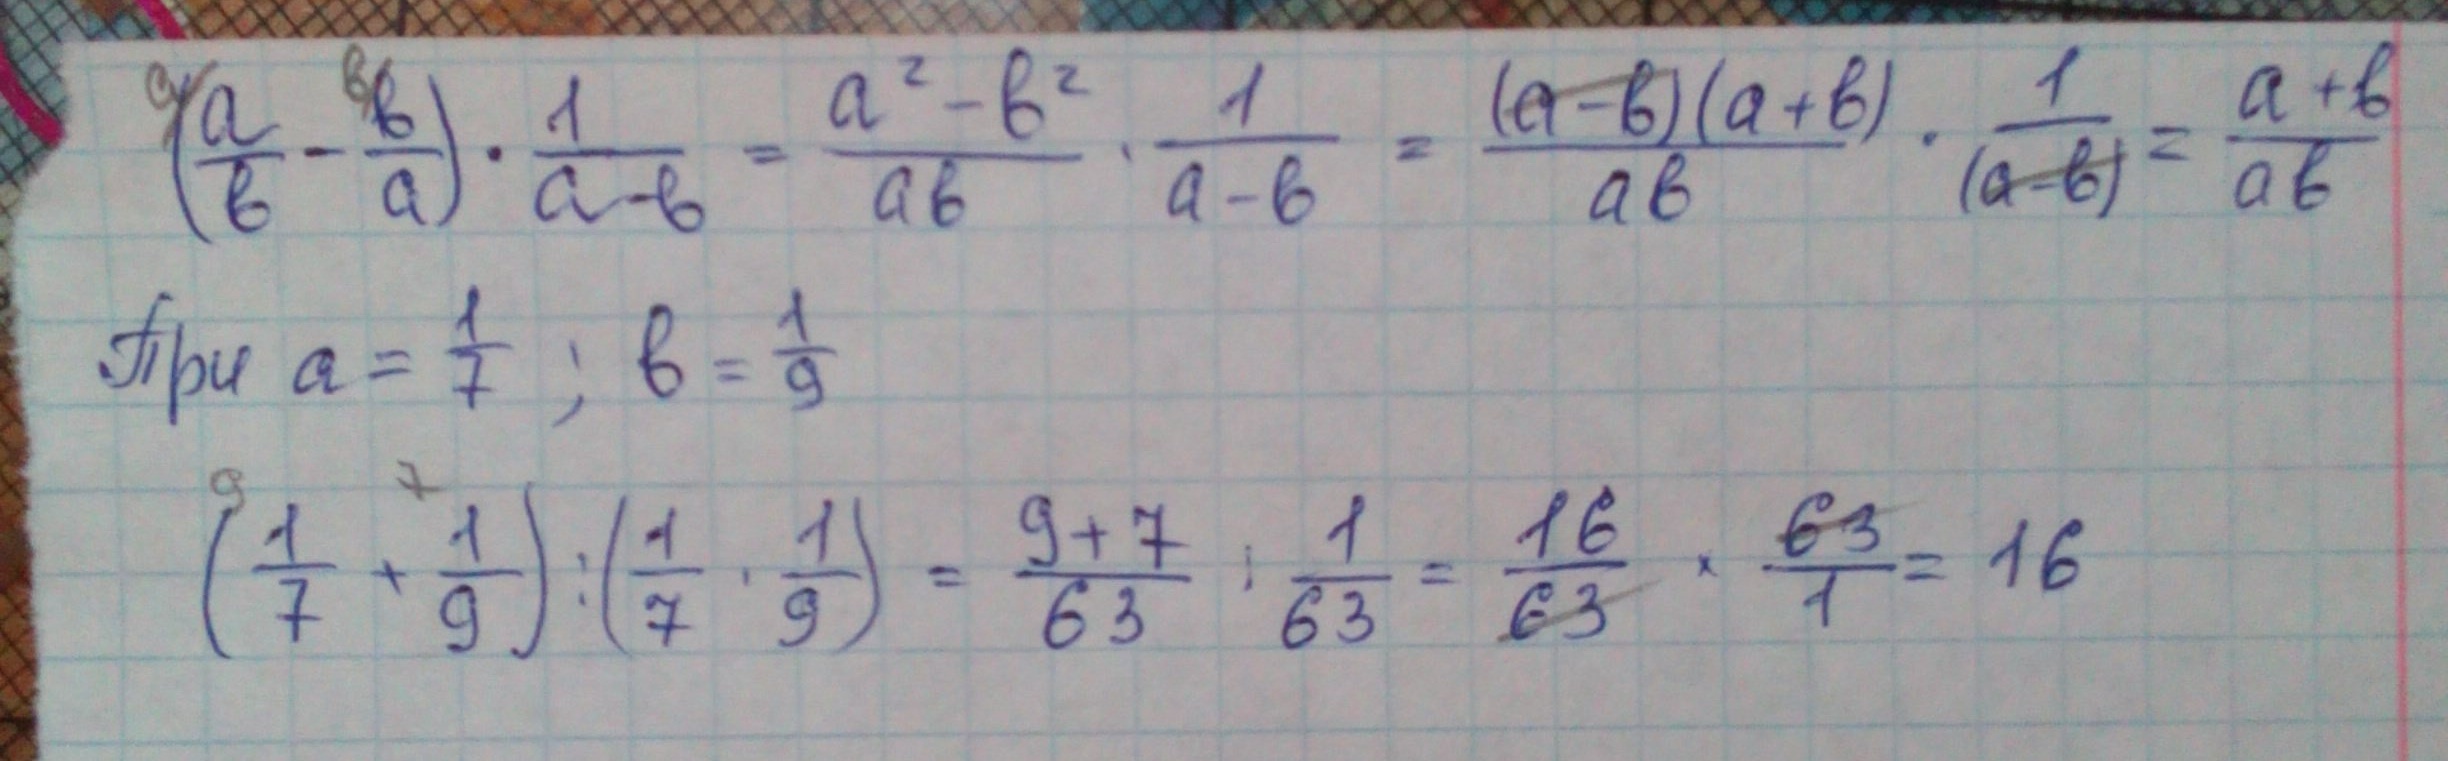 a(a/b - b b/a) · 1/(a-b) = (a² - b²)/(ab) · 1/(a-b) = ((a-b)(a+b))/(ab) · 1/((a-b)) = (a+b)/(ab)
При a = 1/7 ; b = 1/9
9 7
(1/7 + 1/9) : (1/7 · 1/9) = (9+7)/63 : 1/63 = 16/63 × 63/1 = 16